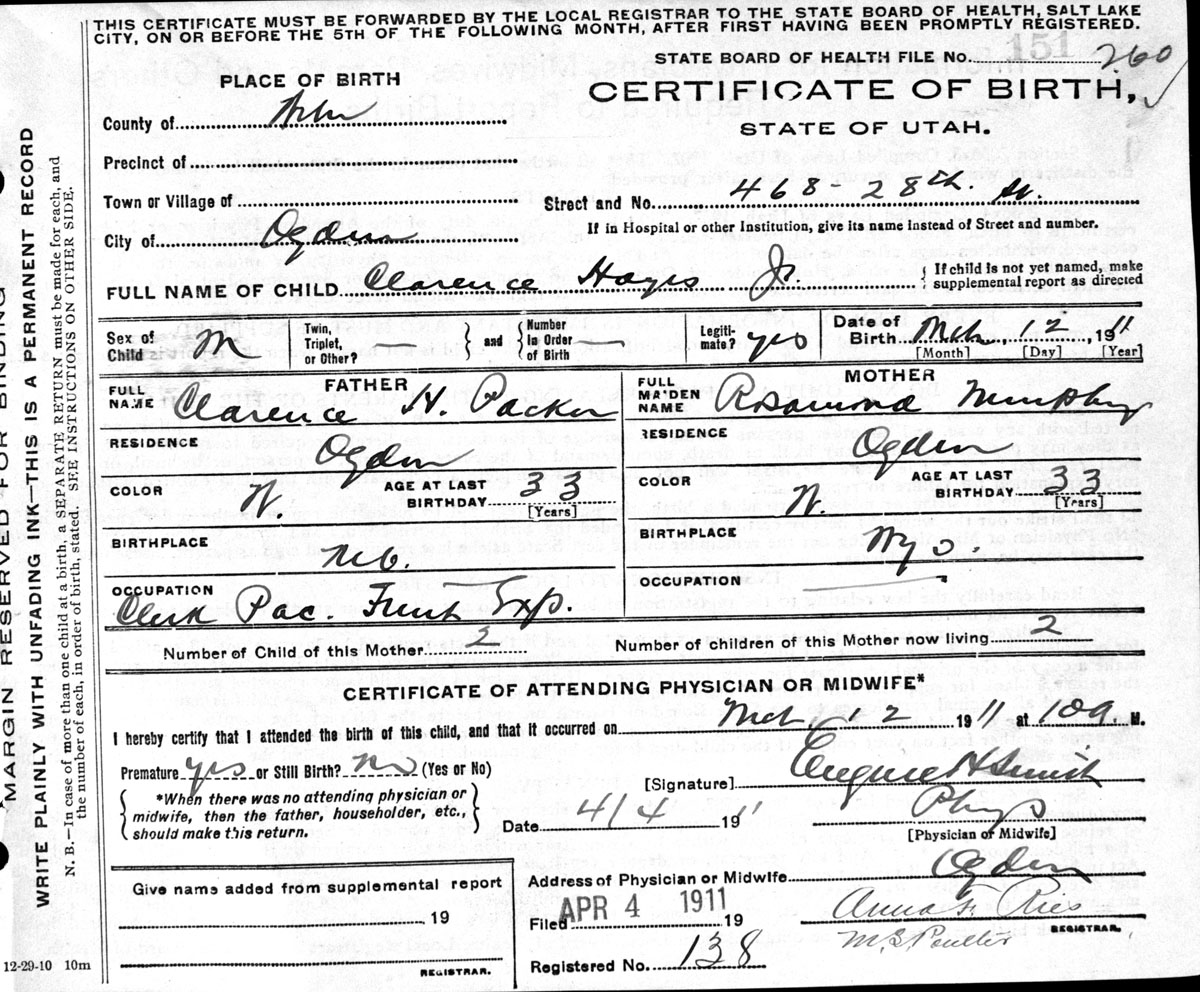 THIS CERTIFICATE MUST BE FORWARDED BY THE LOCAL REGISTRAR TO THE STATE BOARD OF HEALTH, SALT LAKE
CITY, ON OR BEFORE THE 5TH OF THE FOLLOWING MONTH, AFTER FIRST HAVING BEEN PROMPTLY REGISTERED.
STATE BOARD OF HEALTH FILE No. 151 260
PLACE OF BIRTH
CERTIFICATE OF BIRTH,
STATE OF UTAH.
County of Weber
Precinct of
Town or Village of
Street and No. 468-28th. St.
City of Ogden
If in Hospital or other Institution, give its name instead of Street and number.
FULL NAME OF CHILD Clarence Hayes Jr. { If child is not yet named, make
supplemental report as directed
Sex of Child M Twin, Triplet, or Other? — } and { Number in Order of Birth — Legiti-mate? yes Date of Birth Mch. 12 1911
[Month] [Day] [Year]
FATHER MOTHER
FULL NAME Clarence H. Packer FULL MAIDEN NAME Rosamond Murphy
RESIDENCE Ogden RESIDENCE Ogden
COLOR W. AGE AT LAST BIRTHDAY 33 [Years] COLOR W. AGE AT LAST BIRTHDAY 33 [Years]
BIRTHPLACE BIRTHPLACE Wyo.
OCCUPATION Clerk Pac. Exp. OCCUPATION —
Number of Child of this Mother 2 Number of children of this Mother now living 2
CERTIFICATE OF ATTENDING PHYSICIAN OR MIDWIFE*
I hereby certify that I attended the birth of this child, and that it occurred on Mch 12 1911 at 10a M.
Premature yes or Still Birth? no (Yes or No)
[Signature] Eugene H Smith
{ *When there was no attending physician or
midwife, then the father, householder, etc.,
should make this return. }
Phys
Date 4/4 1911
[Physician or Midwife]
Address of Physician or Midwife Ogden
Give name added from supplemental report
19
REGISTRAR.
Filed APR 4 1911 19
Anna F.
REGISTRAR.
M.S. Poulter
Registered No. 138
12-29-10 10m
MARGIN RESERVED FOR BINDING
WRITE PLAINLY WITH UNFADING INK—THIS IS A PERMANENT RECORD
N. B.—In case of more than one child at a birth, a SEPARATE RETURN must be made for each, and
the number of each, in order of birth, stated. SEE INSTRUCTIONS ON OTHER SIDE.